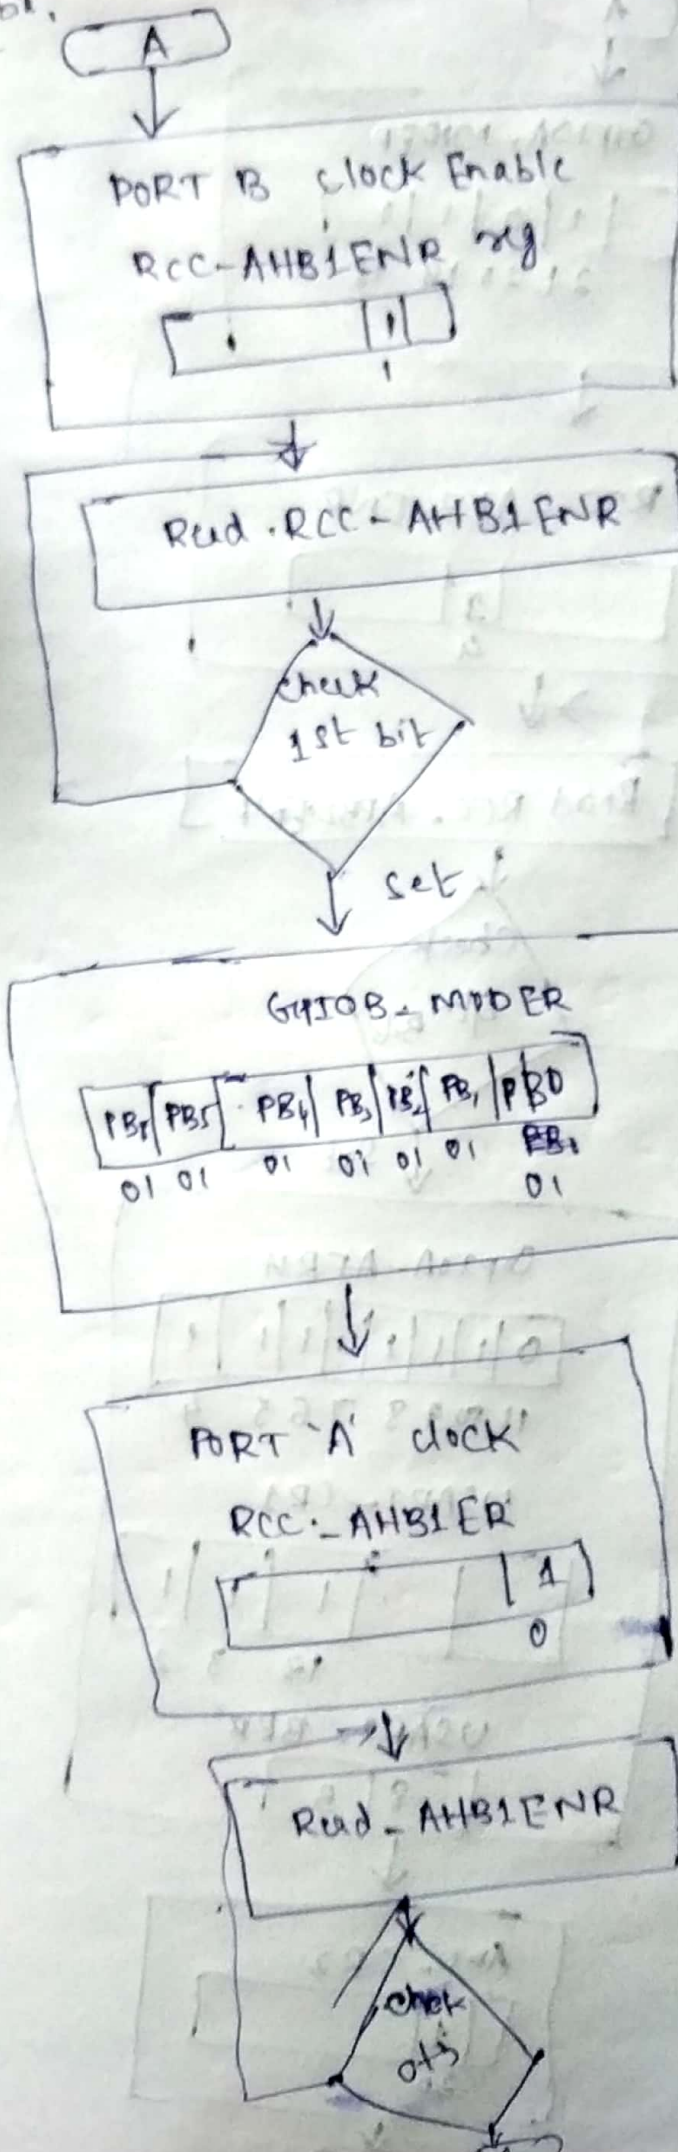 A
PORT B clock Enable
RCC-AHB1ENR reg
1
1
Read . RCC - AHB1ENR
check
1st bit
set
GPIOB - MODER
PB5 PB4 PB3 PB2 PB1 PB0
01 01 01 01 01 01
01
PORT 'A' clock
RCC - AHB1ER
1
0
Read - AHB1ENR
chek